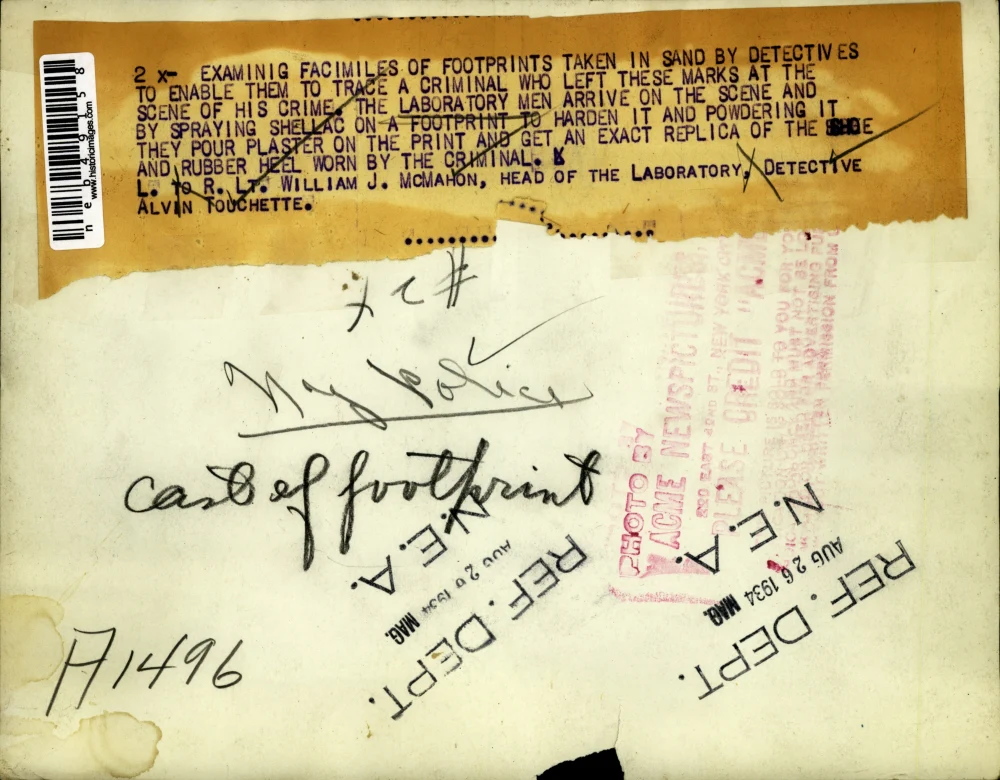 2 x- EXAMINIG FACIMILES OF FOOTPRINTS TAKEN IN SAND BY DETECTIVES
TO ENABLE THEM TO TRACE A CRIMINAL WHO LEFT THESE MARKS AT THE
SCENE OF HIS CRIME. THE LABORATORY MEN ARRIVE ON THE SCENE AND
BY SPRAYING SHELLAC ON A FOOTPRINT TO HARDEN IT AND POWDERING IT
THEY POUR PLASTER ON THE PRINT AND GET AN EXACT REPLICA OF THE SHOE
AND RUBBER HEEL WORN BY THE CRIMINAL.
L. TO R. LT. WILLIAM J. MCMAHON, HEAD OF THE LABORATORY, DETECTIVE
ALVIN TOUCHETTE.
neb49158
www.historicimages.com
# 2 x
Ny Police
cast of footprint
A1496
PHOTO BY
ACME NEWSPICTURES
220 EAST 42ND ST., NEW YORK CITY
PLEASE CREDIT "ACME"
N.E.A.
AUG 26 1934 MAG.
REF. DEPT.
N.E.A.
AUG 26 1934 MAG.
REF. DEPT.